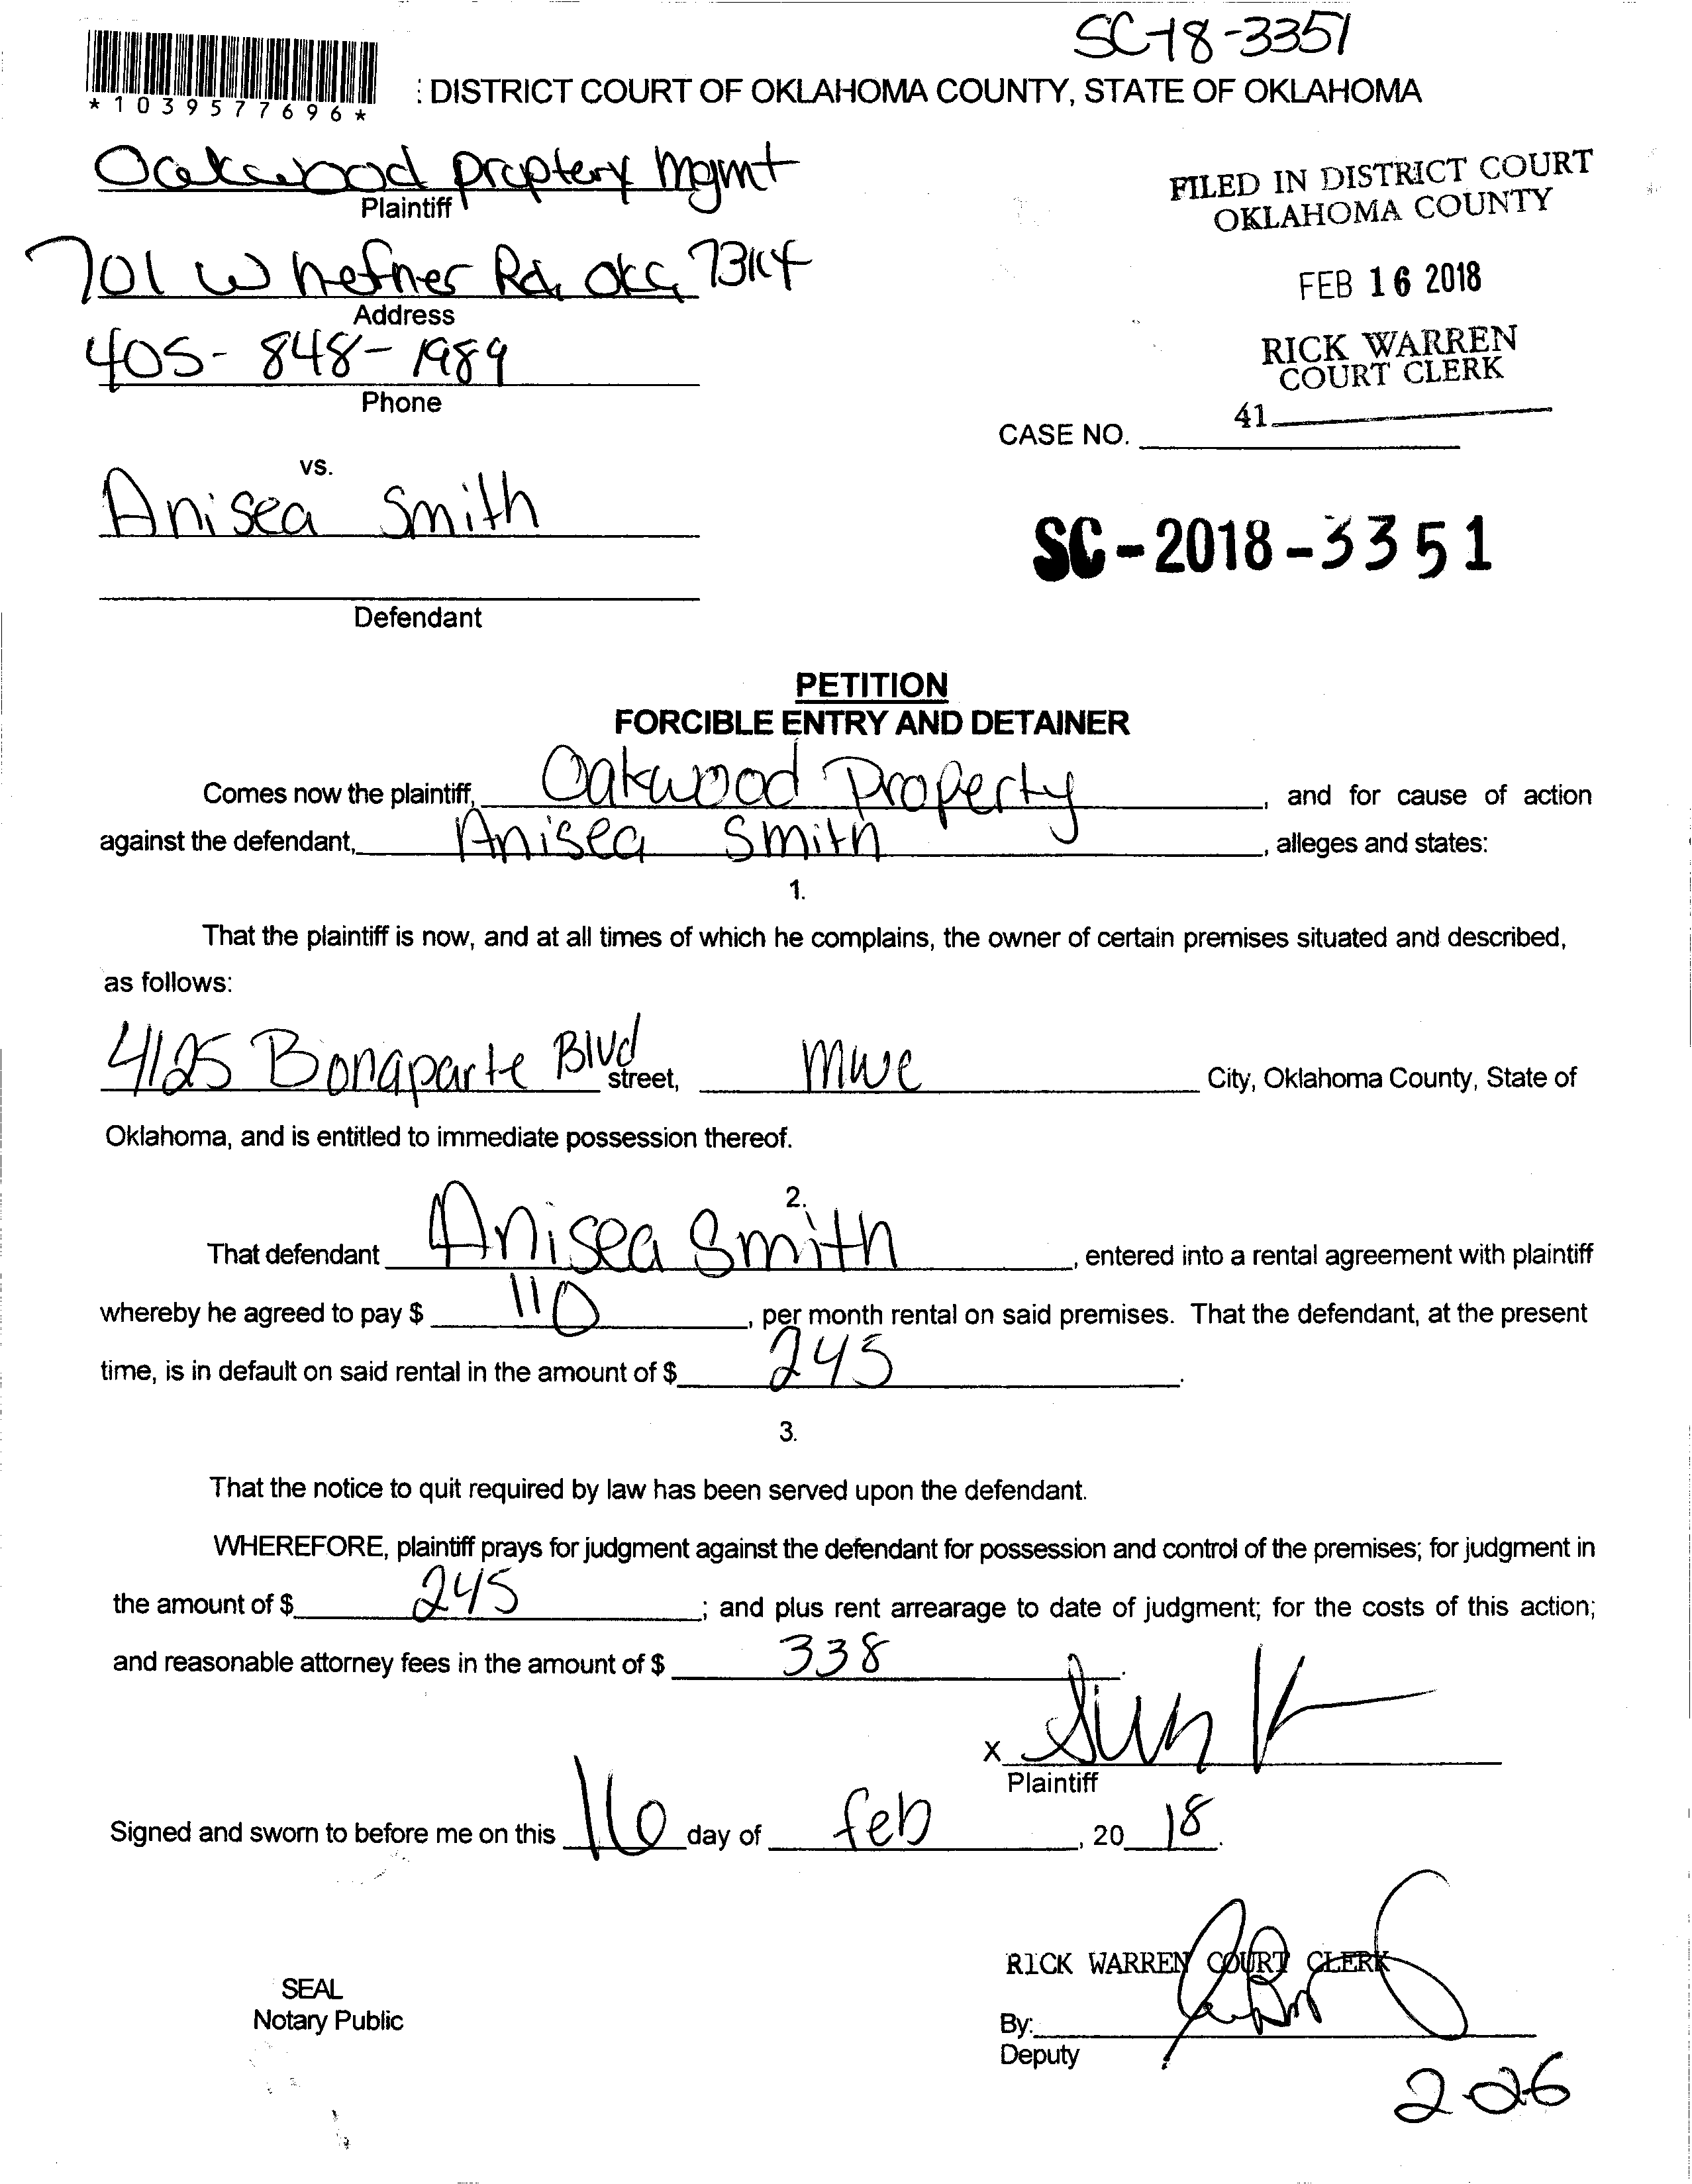 SC-18-3351
*1039577696*
: DISTRICT COURT OF OKLAHOMA COUNTY, STATE OF OKLAHOMA
Oakwood proptery mgmt
Plaintiff
FILED IN DISTRICT COURT
OKLAHOMA COUNTY
701 W hefner Rd, OKC, 73114
Address
FEB 16 2018
405-848-1989
Phone
RICK WARREN
COURT CLERK
41
CASE NO.
vs.
Anisea Smith
SC-2018-3351
Defendant
PETITION
FORCIBLE ENTRY AND DETAINER
Comes now the plaintiff, Oakwood Property, and for cause of action
against the defendant, Anisea Smith, alleges and states:
1.
That the plaintiff is now, and at all times of which he complains, the owner of certain premises situated and described,
as follows:
4125 Bonaparte Blvd street, mwc City, Oklahoma County, State of
Oklahoma, and is entitled to immediate possession thereof.
2.
That defendant Anisea Smith, entered into a rental agreement with plaintiff
whereby he agreed to pay $ 110, per month rental on said premises. That the defendant, at the present
time, is in default on said rental in the amount of $ 245.
3.
That the notice to quit required by law has been served upon the defendant.
WHEREFORE, plaintiff prays for judgment against the defendant for possession and control of the premises; for judgment in
the amount of $ 245; and plus rent arrearage to date of judgment; for the costs of this action;
and reasonable attorney fees in the amount of $ 338.
x
Plaintiff
Signed and sworn to before me on this 16 day of feb, 20 18.
RICK WARREN COURT CLERK
SEAL
Notary Public
By:
Deputy
2-26